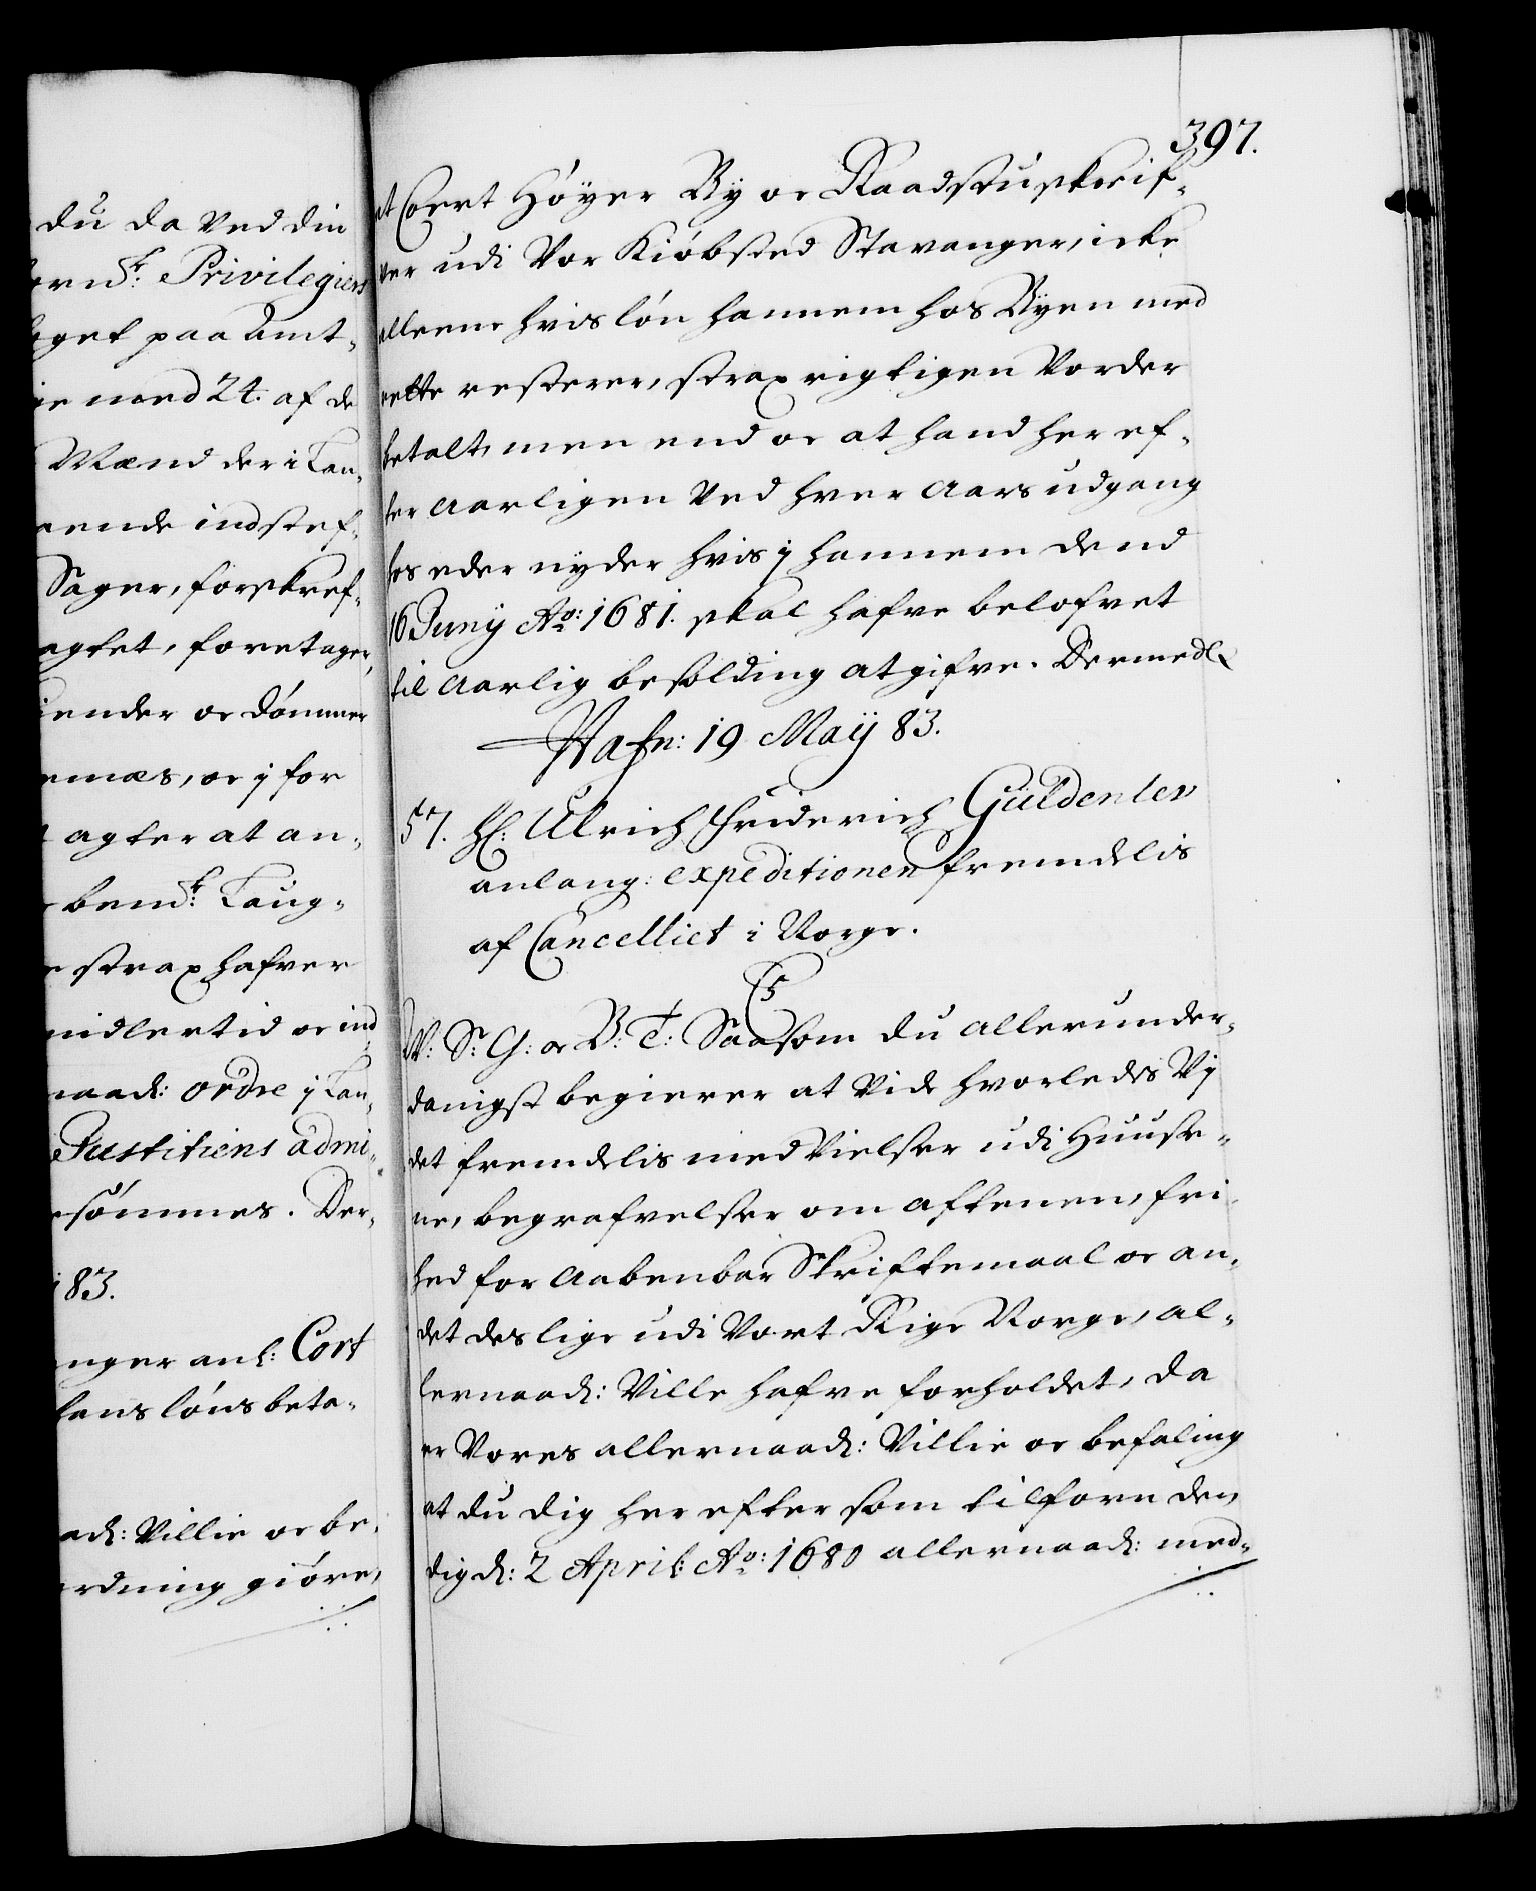 du da ved din
bemt: Privilegiers
get paa Amt-
ie med 24. af de
Mænd der i Lau-
ende indstef-
Sager, forskref-
agtet, foretager,
iender oc dømmer
emmes, oc i for
agter at an-
bemt: Laug-
strax hafver
midlertid oc ind
naad: ordre i Lau-
Justitiens admi-
esømmes. Der-
83.
anger anl: Cort
hans løns beta-
aad: Villie oc be-
ordning giøre,
397.
at Coert Høyer By oc Raadstuskrif-
ver udi Vor Kiøbsted Stavanger, icke
alleene hvis løn hannem hos Byen med
rette resterer, strax rigtigen vorder
betalt, men end oc at hand her ef-
ter Aarligen ved hver Aars udgang
hos eder nyder hvis i hannem dend
16 Junij Ao: 1681. skal hafve belofvet
til Aarlig besolding at gifve. Dermed
Hafn: 19 Maij 83.
57. H: Ulrich Friderich Güldenlew
anlang: expeditionen fremdelis
af Cancelliet i Norge.
C5
V: S: G: oc B: T: Saasom du allerunder-
danigst begierer at vide hvorledes Vi
det fremdelis med Vielser udi Huuse-
ne, begrafvelser om aftenen, fri-
hed for Aabenbar Skriftemaal oc an-
det deslige udi Vort Rige Norge, al-
lernaad: Ville hafve forholdet, da
er Vores allernaad: Villie oc befaling
at du dig her efter som tilforn den
dig d: 2 April: Ao: 1680 allernaad: med-